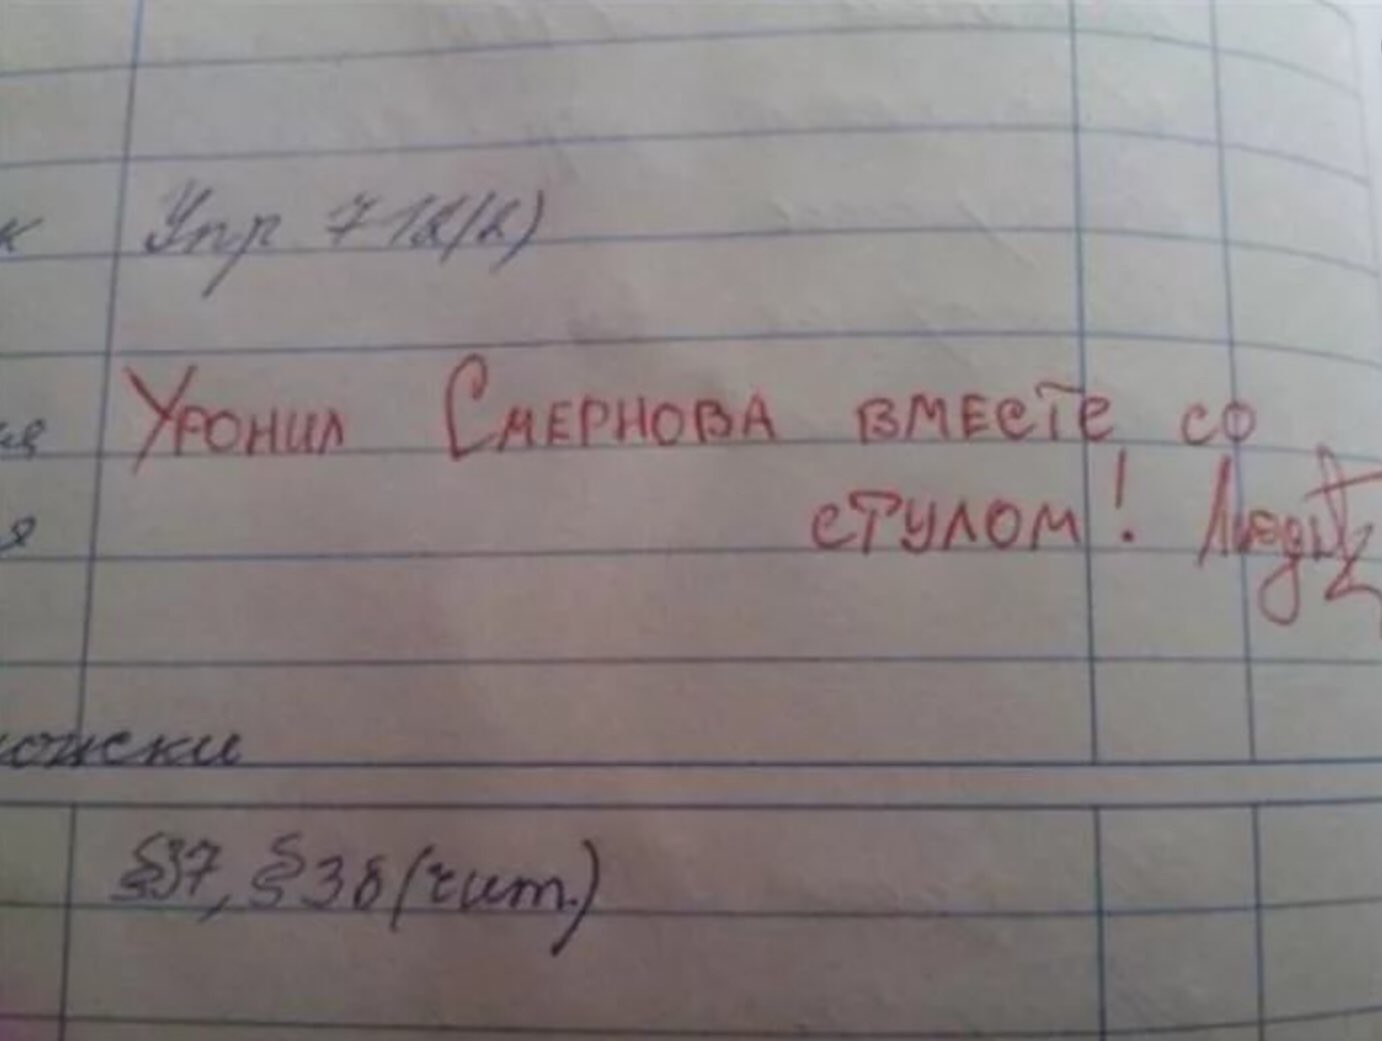 к Упр 712(2)
Уронил Смернова вместе со
я стулом!
§37, §38 (чит.)